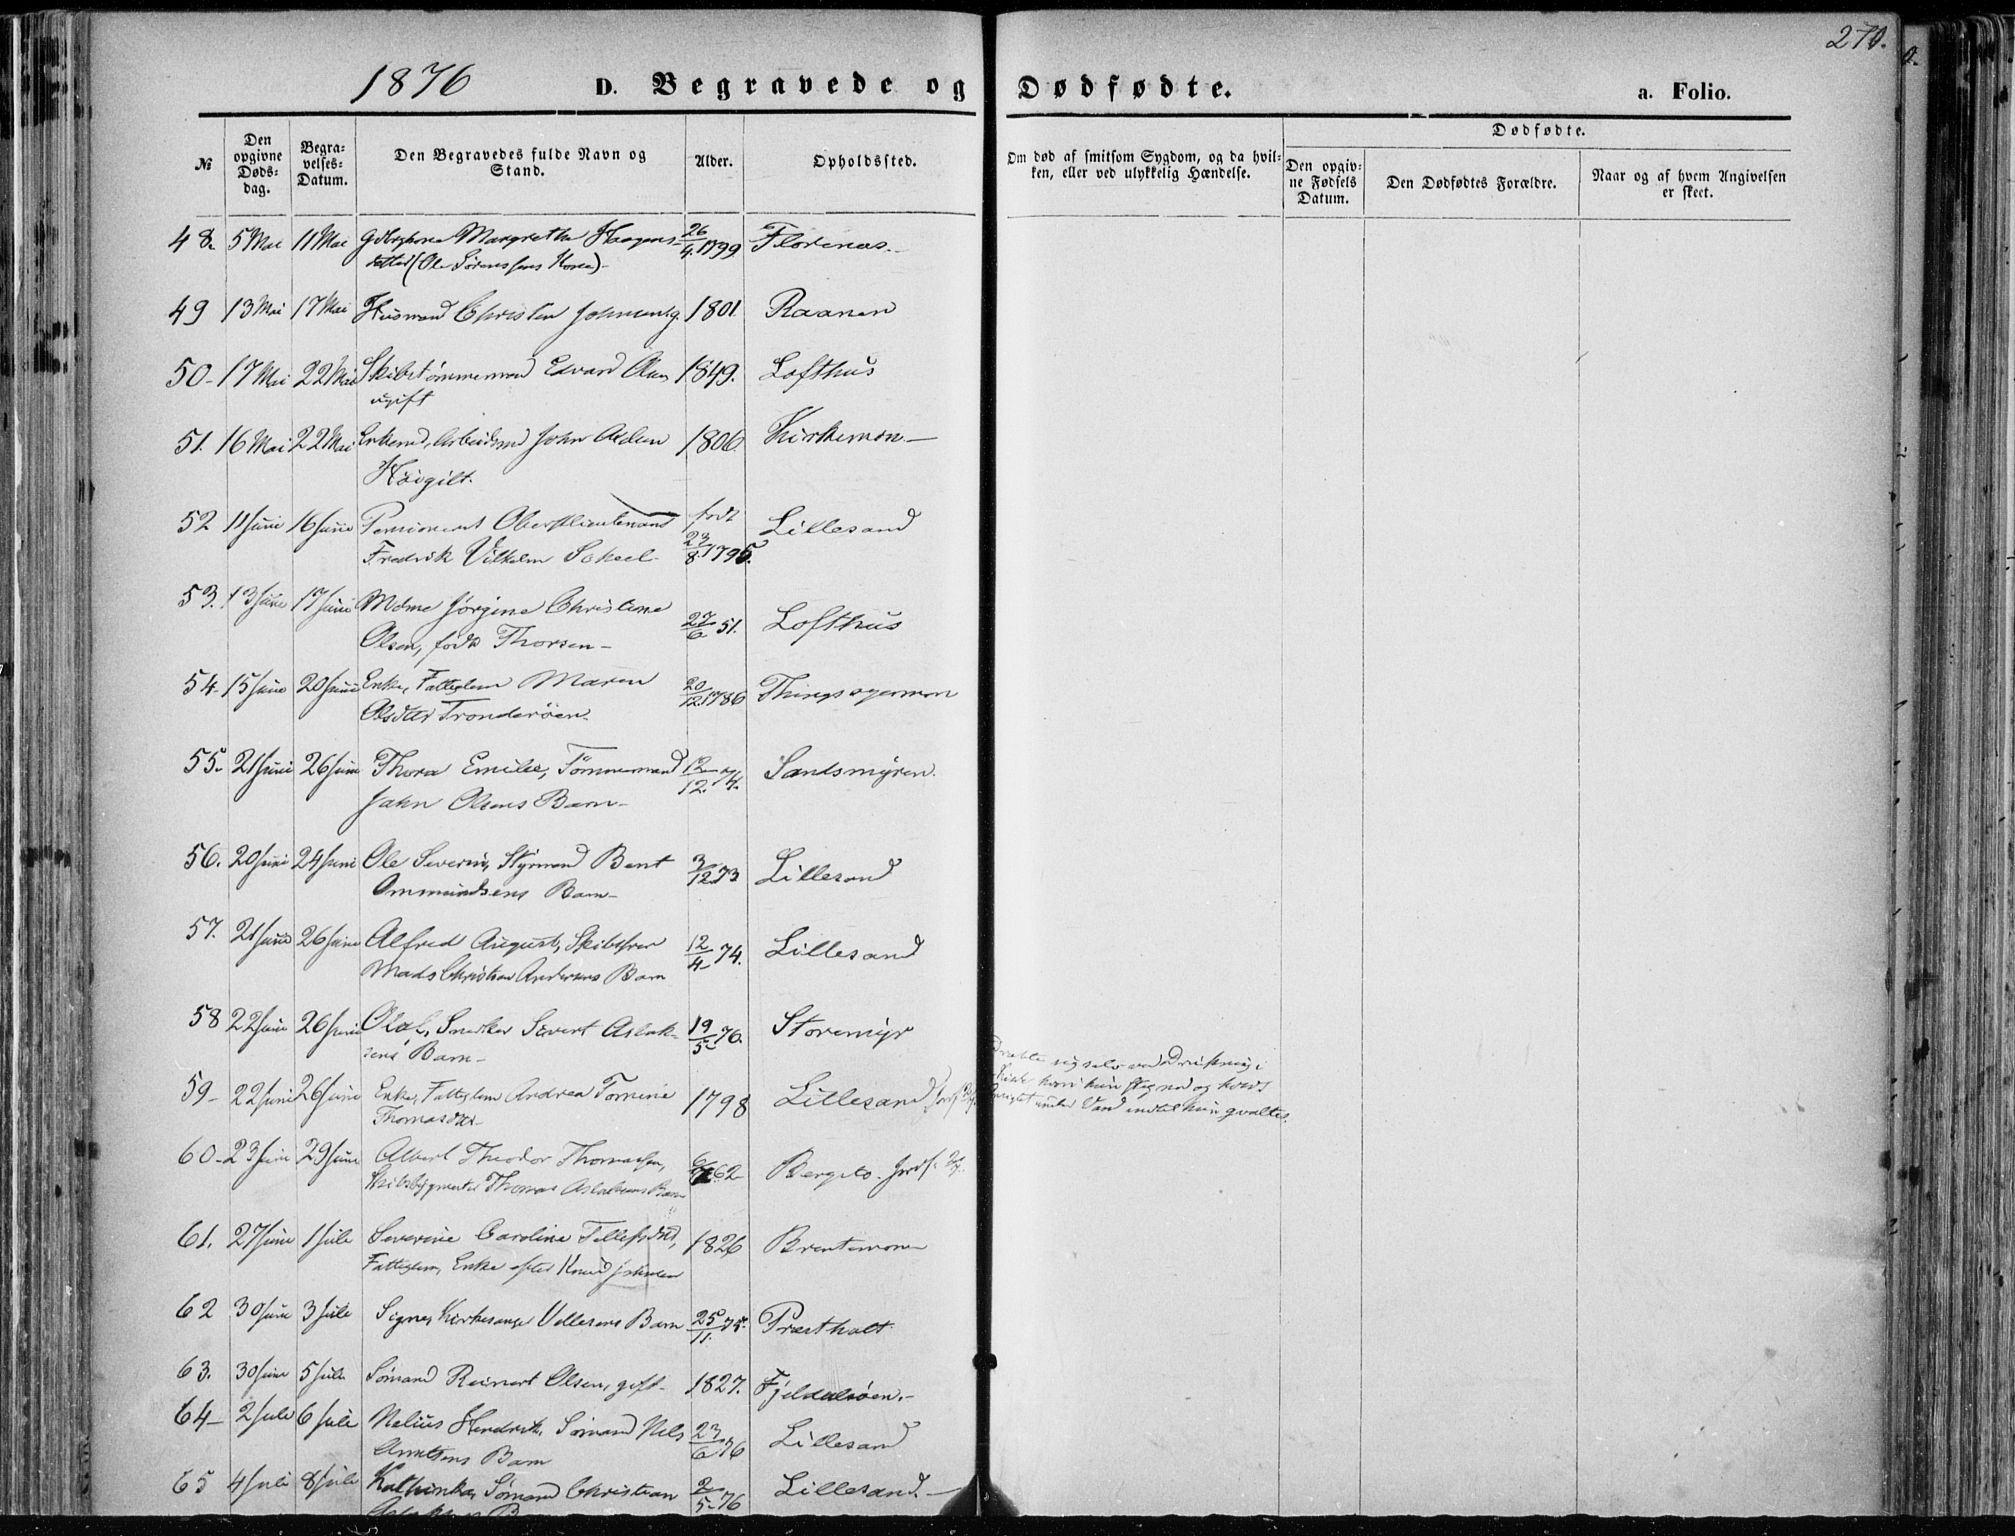 270.
1876 D. Begravede og Dødfødte. a. Folio.
№ Den opgivne Døds-dag. Begra-velses-Datum. Den Begravedes fulde Navn og Stand. Alder. Opholdssted. Om død af smitsom Sygdom, og da hvil-ken, eller ved ulykkelig Hændelse. Dødfødte. Den opgiv-ne Fødsels Datum. Den Dødfødtes Forældre. Naar og af hvem Angivelsen er skeet.
48. 5 Mai 11 Mai Margrethe Haagens- 26/4 1799 Florenæs.
datter (Ole Sørenssens Kone)-
49 13 Mai 17 Mai Husmand Christen Johnsen g. 1801. Raanen
50- 17 Mai 22 Mai Skibstømmermand Edvard Olsen 1849. Lofthus
ugift
51. 16 Mai 22 Mai Enkemd, Arbeidsmd John 1806. Kirkemon-
Høigilt.
52 11 Juni 16 Juni Pensioneret Oberstlieutenant født Lillesand
Fredrik Vilhelm Scheel- 23/8 1795.
53. 13 Juni 17 Juni Mdme Jørgine Christine 27/6 51. Lofthus
Olsen, født Thorsen-
54- 15 Juni 20 Juni Enke, Fattiglem Maren 20/12 1786 Thingsagermon
Olsdtter Tronderøen.
55. 21 Juni 26 Juni Thora Emilie, Tømmermand 12/12 74. Sandsmyren.
John Olsens Barn-
56. 20 Juni 24 Juni Ole Severin, Styrmand Bent 3/12 73 Lillesand
Ommundsens Barn-
57. 21 Juni 26 Juni Alfred August, Skibsfører 12/4 74. Lillesand
Mads Christian Andersens Barn
58 22 Juni 26 Juni Olaf, Snedker Sivert Aslak- 19/5 76. Storemyr
sens Barn-
59- 22 Juni 26 Juni Enke, Fattiglem Andrea Tomine 1798 Lillesand
Thomasdtr-
Dræbte sig selv ved Drukning i
hvori hun steg ned og holdt
under Vand indtil hun qvaltes.
60- 23 Juni 29 Juni Albert Theodor Thomassen, 62- Bergito.
Skibsbygmester Thomas Aslaksens Barn
61. 27 Juni 1 Juli Severine Caroline Tellefsdtr, 1826 Brentemoen
Fattiglem, Enke efter Knud Johnsen
62 30 Juni 3 Juli Signe, Kirkesanger Vellesens Barn 25/11 75. Præstholt
63. 30 Juni 5 Juli Sømand Reinert Olsen, gift- 1827. Fjeldalsøen.-
64- 2 Juli 6 Juli Nelius Hendrik, Sømand Nils 23/6 76 Lillesand
Arntsens Barn
65 4 Juli 8 Juli Kathinka, Sømand Christian 2/5 76 Lillesand.-